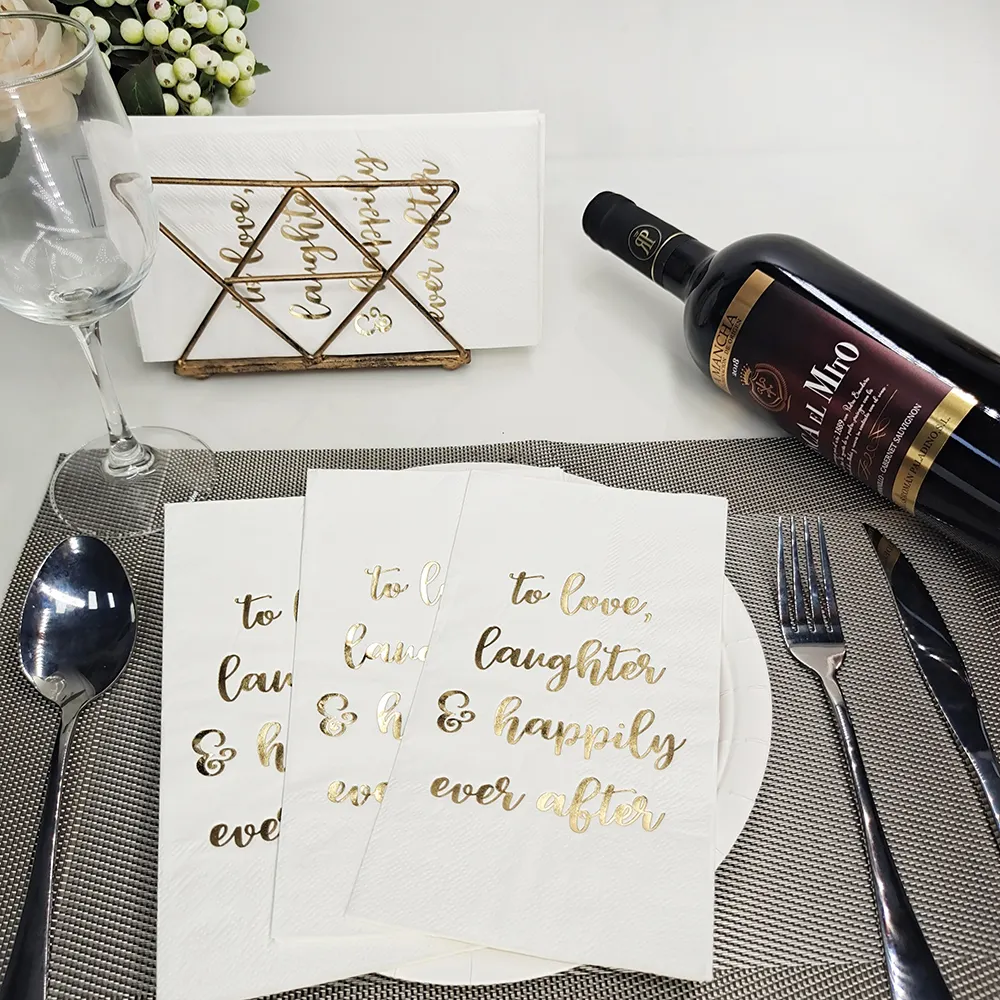 to love,
laughter
& happily
ever after
RP
MANCHA
2018
EL MITO
CABERNET SAUVIGNON
to love,
laughter
& happily
ever after
to l
laug
& h
ever
to
lau
& h
eve